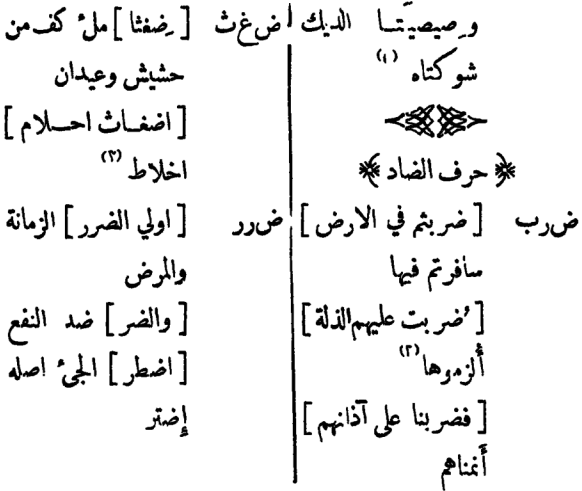 وصيصيتا الديك
شوكتاه (١)
حرف الضاد
ض رب [ضربتم في الارض]
سافرتم فيها
[ضُربت عليهم الذلة]
أُلزموها (٢)
[فضربنا على آذانهم]
أنمناهم
ض غ ث [ضِغثا] ملء كف من
حشيش وعيدان
[اضغاث احلام]
اخلاط (٣)
ض رر [اولي الضرر] الزمانة
والمرض
[والضر] ضد النفع
[اضطر] الجئ اصله
إضتر